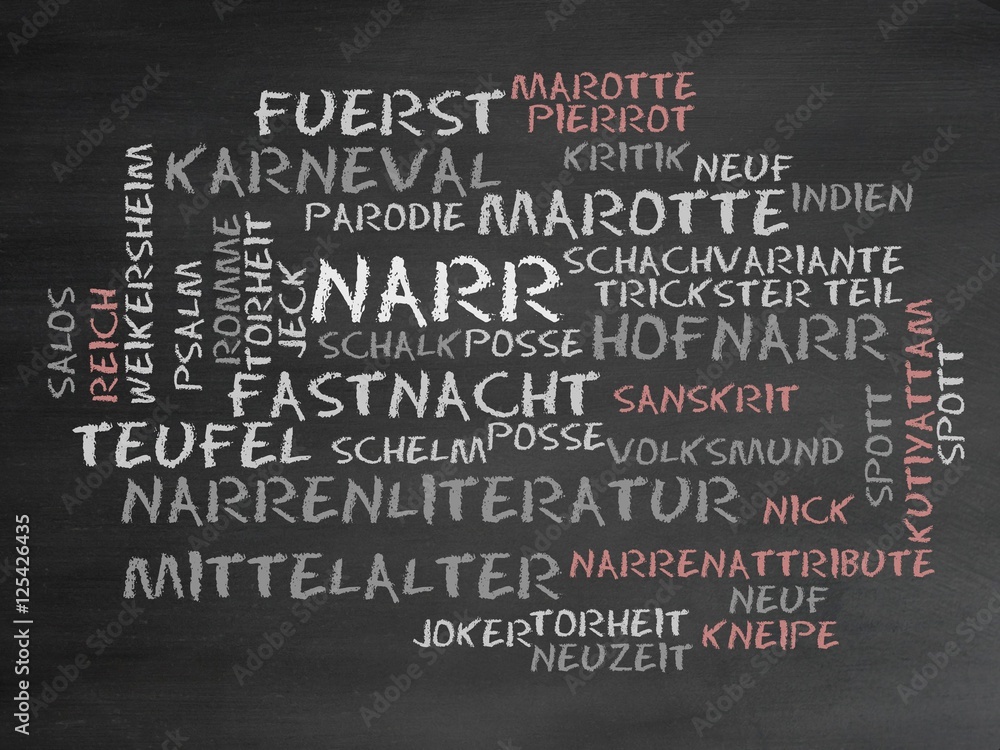 MAROTTE
FUERST
PIERROT
KRITIK
KARNEVAL
NEUF
INDIEN
PARODIE
MAROTTE
WEIKERSHEIM
IROMMWE
TORHEIT
PSALM
JECK
NARR
SCHACHVARIANTE
TRICKSTER TEIL
SALOS
REICH
SCHALK
POSSE
HOFNARR
FASTNACHT
SANSKRIT
KUTIYATTAM
SPOTT
SPOTT
TEUFEL
SCHELM
POSSE
VOLKSMUND
NARRENLITERATUR
NICK
MITTELALTER
NARRENATTRIBUTE
NEUF
JOKER
TORHEIT
KNEIPE
NEUZEIT
Adobe Stock | #125426435